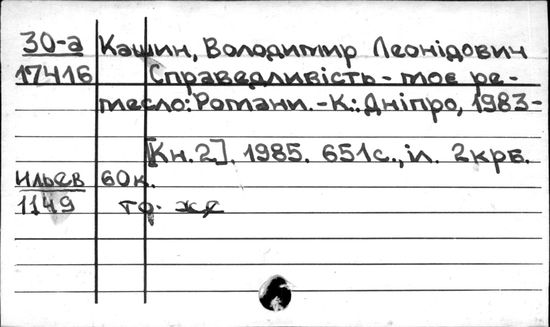 30-а Кашин, Володимир Леонідович
17416 Справедливість - моє ре-
месло: Романи. - К.: Дніпро, 1983-
[Кн. 2]. 1985. 651 с., іл. 2крб.
Ильев 60к.
1149 то же